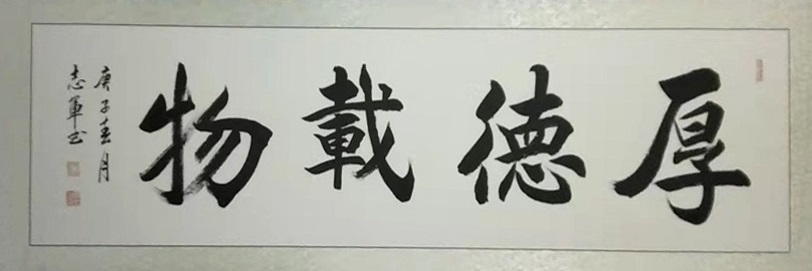 厚德載物
庚子春月
志軍书